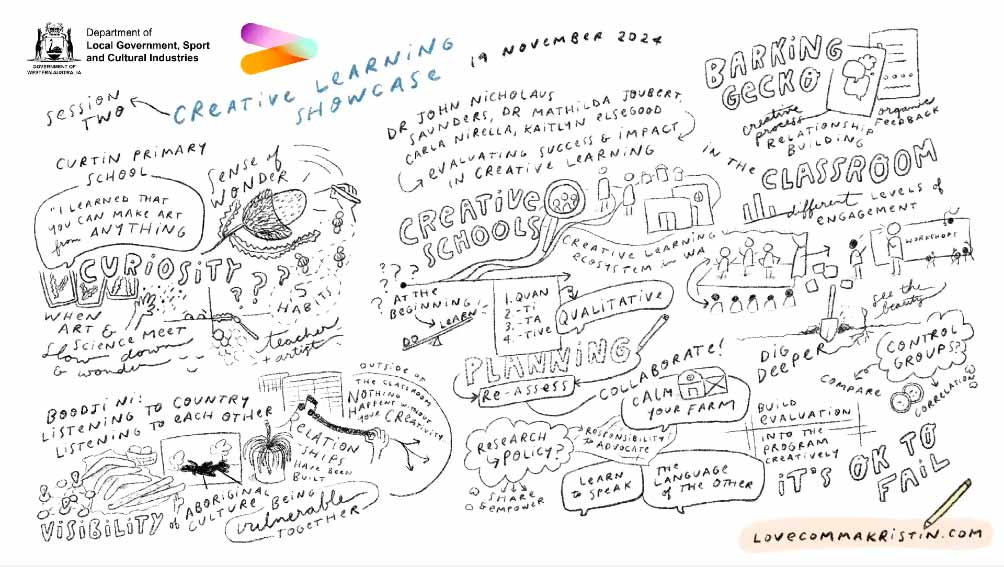 GOVERNMENT OF
WESTERN AUSTRALIA
Department of
Local Government, Sport
and Cultural Industries
SESSION
TWO
CREATIVE LEARNING
SHOWCASE
19 NOVEMBER 2024
CURTIN PRIMARY
SCHOOL
"I LEARNED THAT
YOU CAN MAKE ART
from ANYTHING
SENSE of
WONDER
CURIOSITY
? ? ?
5
HABITS
WHEN
ART &
SCIENCE MEET
slow down
& wonder
teacher
+ artist
BOODJI NI:
LISTENING TO COUNTRY
LISTENING TO EACH OTHER
VISIBILITY of ABORIGINAL
CULTURE
RELATION
SHIPS
HAVE BEEN
BUILT
BEING
vulnerable
TOGETHER
OUTSIDE OF
THE CLASSROOM
NOTHING
HAPPENS WITHOUT
YOUR CREATIVITY
DR JOHN NICHOLAUS
SAUNDERS, DR MATHILDA JOUBERT,
CARLA NIRELLA, KAITLYN ELSEGOOD
EVALUATING SUCCESS & IMPACT
IN CREATIVE LEARNING
CREATIVE
SCHOOLS
CREATIVE LEARNING
ECOSYSTEM in WA
? ? ?
?
?
AT THE
BEGINNING
LEARN
DO
1. QUAN
2. -TI
3. -TA
4. -TIVE
QUALITATIVE
PLANNING
Re-Assess
COLLABORATE!
CALM
YOUR FARM
RESEARCH
POLICY?
RESPONSIBILITY
TO ADVOCATE
SHARE
& EMPOWER
LEARN
TO SPEAK
THE
LANGUAGE
of THE OTHER
BARKING
GECKO
creative
process
organic
FEEDBACK
RELATIONSHIP
BUILDING
IN THE
CLASSROOM
different LEVELS of
ENGAGEMENT
WORKSHOPS
see the
beauty
DIG
DEEPER
CONTROL
GROUPS?
COMPARE
CORRELATION
BUILD
EVALUATION
INTO THE
PROGRAM
CREATIVELY
IT'S OK TO
FAIL
LOVECOMMAKRISTIN.COM